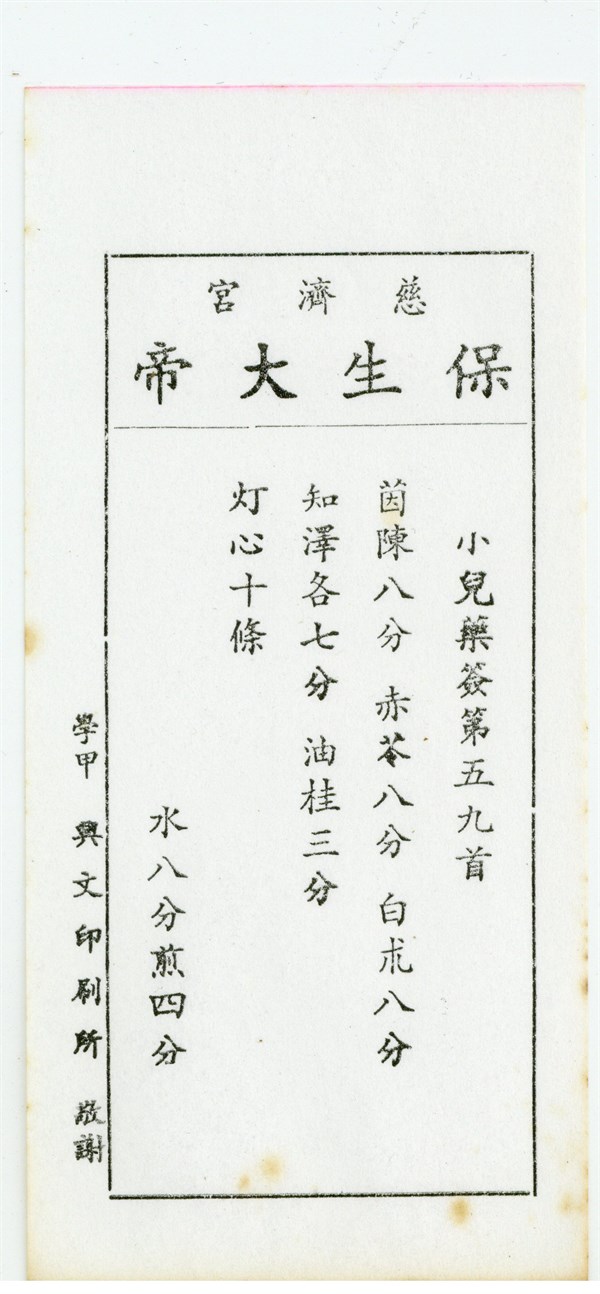 慈濟宮
保生大帝
小兒藥簽第五九首
茵陳八分 赤苓八分 白朮八分
知澤各七分 油桂三分
灯心十條
水八分煎四分
學甲 興文印刷所 敬謝